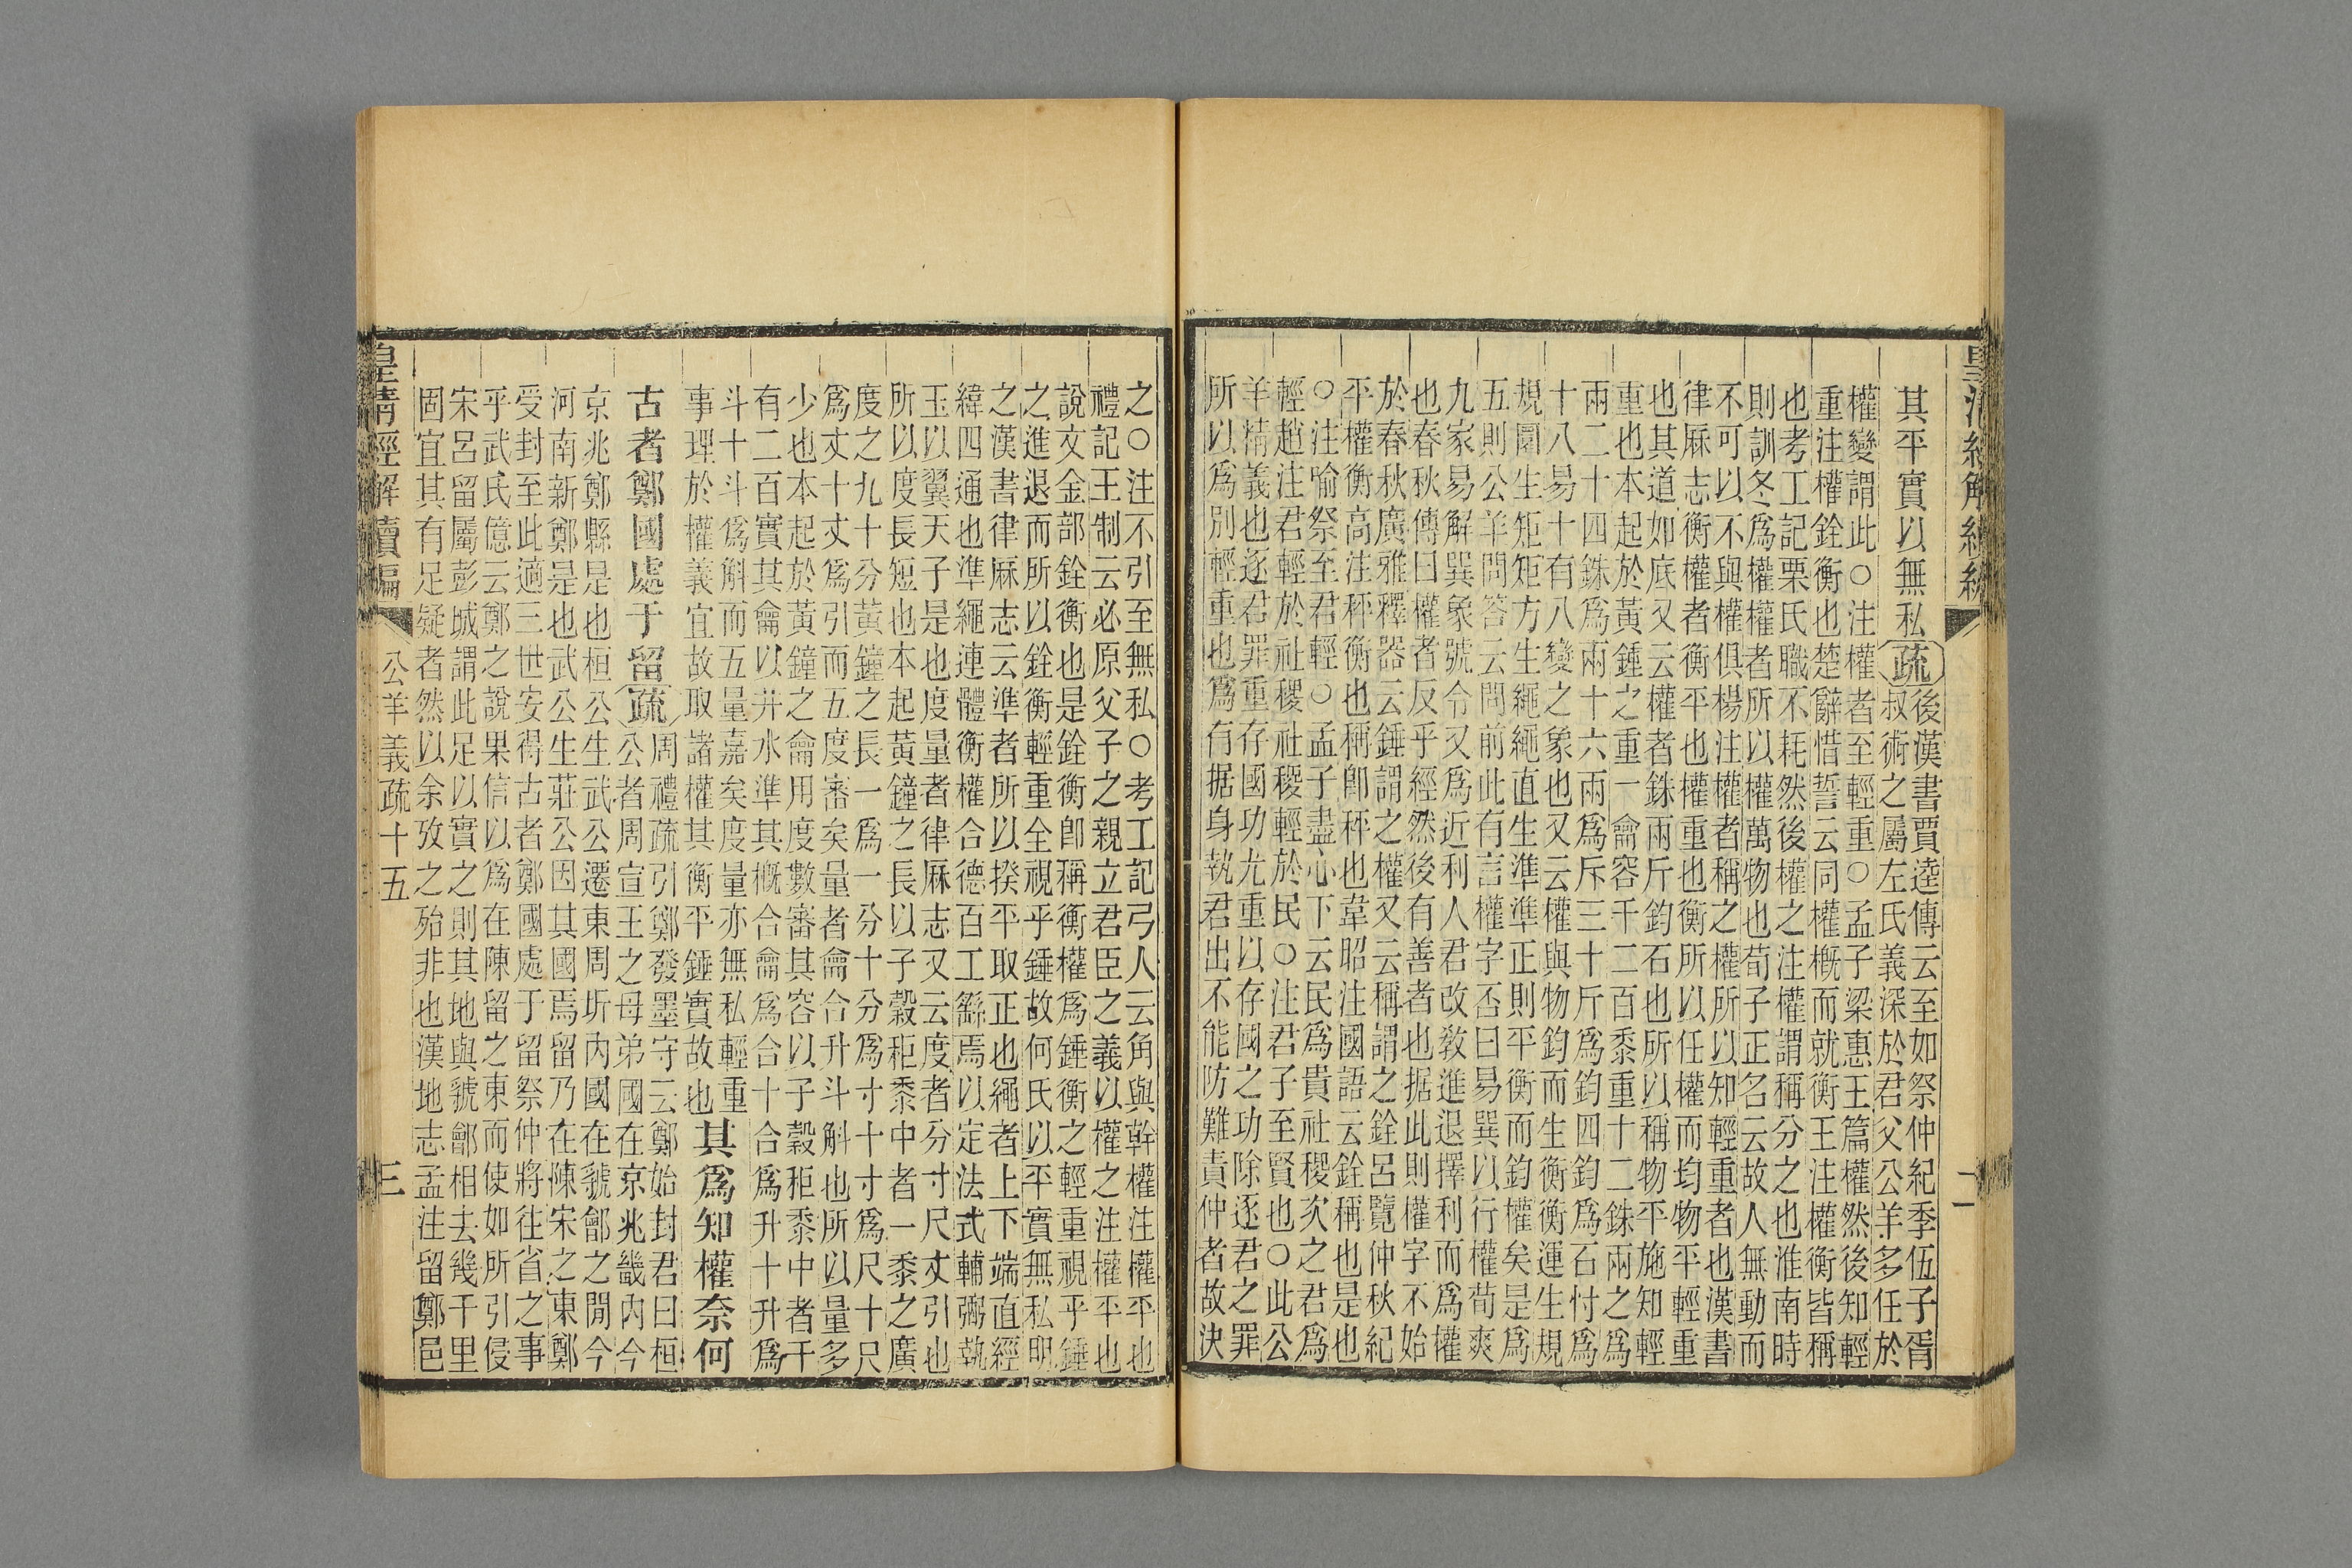 皇清經解續編
其平實以無私疏後漢書賈逵傳云至如祭仲紀季伍子胥
叔術之屬左氏義深於君父公羊多任於
權變謂此○注權者至輕重○孟子梁惠王篇權然後知輕
重注權銓衡也楚辭惜誓云同權槪而就衡王注權衡皆稱
也考工記栗氏職不耗然後權之注權謂稱分之也淮南時
則訓冬爲權權者所以權萬物也荀子正名云故人無動而
不可以不與權俱楊注權者稱之權所以知輕重者也漢書
律厤志衡權者衡平也權重也衡所以任權而均物平輕重
也其道如底又云權者銖兩斤鈞石也所以稱物平施知輕
重也本起於黃鍾之重一龠容千二百黍重十二銖兩之爲
兩二十四銖爲兩十六兩爲斤三十斤爲鈞四鈞爲石忖爲
十八易十有八變之象也又云權與物鈞而生衡衡運生規
規圜生矩矩方生繩繩直生準準正則平衡而鈞權矣是爲
五則公羊問答云問前此有言權字否曰易巽以行權荀爽
九家易解巽象號令又爲近利人君改敎進退擇利而爲權
也春秋傳曰權者反乎經然後有善者也据此則權字不始
於春秋廣雅釋器云錘謂之權又云稱謂之銓呂覽仲秋紀
平權衡高注秤衡也稱卽秤也韋昭注國語云銓稱也是也
○注喻祭至君輕○孟子盡心下云民爲貴社稷次之君爲
輕趙注君輕於社稷社稷輕於民○注君子至賢也○此公
羊精義也逐君罪重存國功尤重以存國之功除逐君之罪
所以爲別輕重也爲有据身執君出不能防難責仲者故決
之○注不引至無私○考工記弓人云角與幹權注權平也
禮記王制云必原父子之親立君臣之義以權之注權平也
說文金部銓衡也是銓衡卽稱衡權爲錘衡之輕重視乎錘
之進退而所以銓衡輕重全視乎錘故何氏以平實無私明
之漢書律厤志云準者所以揆平取正也繩者上下端直經
緯四通也準繩連體衡權合德百工繇焉以定法式輔弼執
玉以翼天子是也度量者律厤志又云度者分寸尺丈引也
所以度長短也本起黃鐘之長以子穀秬黍中者一黍之廣
度之九十分黃鐘之長一爲一分十分爲寸十寸爲尺十尺
爲丈十丈爲引而五度審矣量者龠合升斗斛也所以量多
少也本起於黃鐘之龠用度數審其容以子穀秬黍中者千
有二百實其龠以井水準其槪合龠爲合十合爲升十升爲
斗十斗爲斛而五量嘉矣度量亦無私輕重
事理於權義宜故取諸權其衡平錘實故也其爲知權奈何
古者鄭國處于留疏周禮疏引鄭發墨守云鄭始封君曰桓
公者周宣王之母弟國在京兆畿內今
京兆鄭縣是也桓公生武公遷東周圻內國在虢鄶之閒今
河南新鄭是也武公生莊公因其國焉留乃在陳宋之東鄭
受封至此適三世安得古者鄭國處于留祭仲將往省之事
乎武氏億云鄭之說果信以爲在陳留之東而使如所引侵
宋呂留屬彭城謂此足以實之則其地與虢鄶相去幾千里
固宜其有足疑者然以余攷之殆非也漢地志孟注留鄭邑
皇清經解續編 公羊義疏十五 三